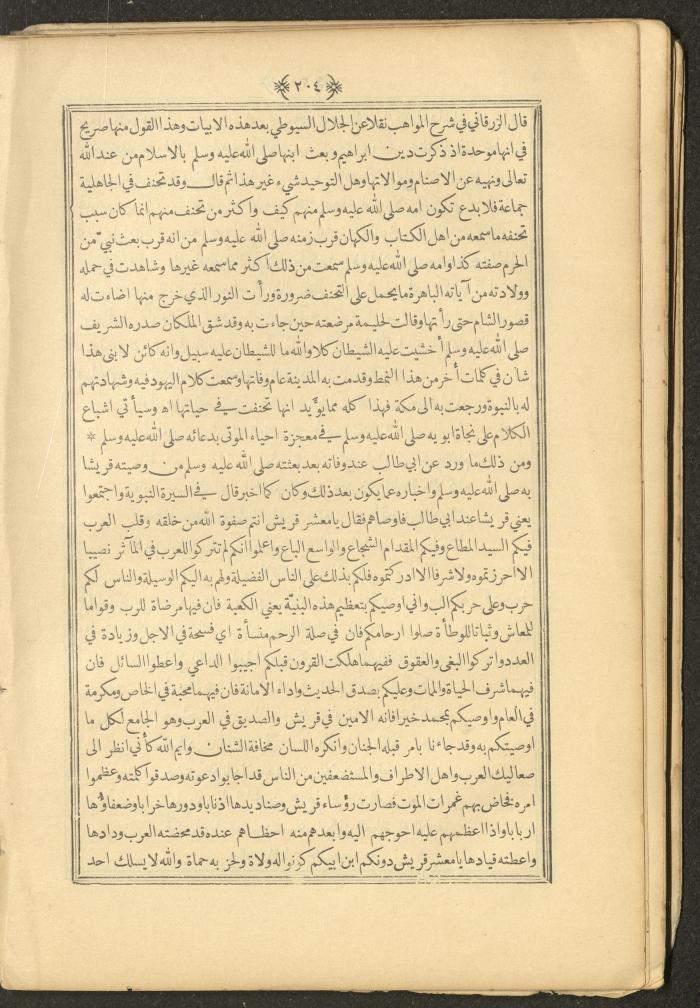 ٢٠٤
قال الزرقاني في شرح المواهب نقلا عن الجلال السيوطي بعد هذه الابيات وهذا القول منها صريح
في انها موحدة اذ ذكرت دين ابراهيم وبعث ابنها صلى الله عليه وسلم بالاسلام من عند الله
تعالى ونهيه عن الاصنام وموالاتها وهل التوحيد شيء غير هذا ثم قال وقد تحنف في الجاهلية
جماعة فلا بدع تكون امه صلى الله عليه وسلم منهم كيف واكثر من تحنف منهم انما كان سبب
تحنفه ما سمعه من اهل الكتاب والكهان قرب زمنه صلى الله عليه وسلم من انه قرب بعث نبيّ من
الحرم صفته كذا وامه صلى الله عليه وسلم سمعت من ذلك اكثر مما سمعه غيرها وشاهدت في حمله
وولادته من آياته الباهرة ما يحمل على التحنف ضرورة ورأت النور الذي خرج منها اضاءت له
قصور الشام حتى رأتها وقالت لحليمة مرضعته حين جاءت به وقد شق الملكان صدره الشريف
صلى الله عليه وسلم أخشيت عليه الشيطان كلا والله ما للشيطان عليه سبيل وانه كائن لابني هذا
شأن في كلمات أخر من هذا النمط وقدمت به المدينة عام وفاتها وسمعت كلام اليهود فيه وشهادتهم
له بالنبوة ورجعت به الى مكة فهذا كله مما يؤيد انها تحنفت في حياتها اه وسيأتي اشباع
الكلام على نجاة ابويه صلى الله عليه وسلم في معجزة احياء الموتى بدعائه صلى الله عليه وسلم *
ومن ذلك ما ورد عن ابي طالب عند وفاته بعد بعثته صلى الله عليه وسلم من وصيته قريشا
به صلى الله عليه وسلم واخباره عما يكون بعد ذلك وكان كما اخبر قال في السيرة النبوية واجتمعوا
يعني قريشا عند ابي طالب فاوصاهم فقال يا معشر قريش انتم صفوة الله من خلقه وقلب العرب
فيكم السيد المطاع وفيكم المقدام الشجاع والواسع الباع واعلموا انكم لم تتركوا للعرب في المآثر نصيبا
الا احرزتموه ولا شرفا الا ادركتموه فلكم بذلك على الناس الفضيلة ولهم به اليكم الوسيلة والناس لكم
حرب وعلى حربكم الب واني اوصيكم بتعظيم هذه البنيّة يعني الكعبة فان فيها مرضاة للرب وقواما
للمعاش وثباتا للوطأة صلوا ارحامكم فان في صلة الرحم منسأة اي فسحة في الاجل وزيادة في
العدد واتركوا البغي والعقوق ففيهما هلكت القرون قبلكم اجيبوا الداعي واعطوا السائل فان
فيهما شرف الحياة والممات وعليكم بصدق الحديث واداء الامانة فان فيهما محبة في الخاص ومكرمة
في العام واوصيكم بمحمد خيرا فانه الامين في قريش والصديق في العرب وهو الجامع لكل ما
اوصيتكم به وقد جاءنا بامر قبله الجنان وانكره اللسان مخافة الشنان وايم الله كأني انظر الى
صعاليك العرب واهل الاطراف والمستضعفين من الناس قد اجابوا دعوته وصدقوا كلمته وعظموا
امره فخاض بهم غمرات الموت فصارت رؤساء قريش وصناديدها اذنابا ودورها خرابا وضعفاؤها
اربابا واذا اعظمهم عليه احوجهم اليه وابعدهم منه احظاهم عنده قد محضته العرب ودادها
واعطته قيادها يا معشر قريش دونكم ابن ابيكم كونوا له ولاة ولحزبه حماة والله لا يسلك احد